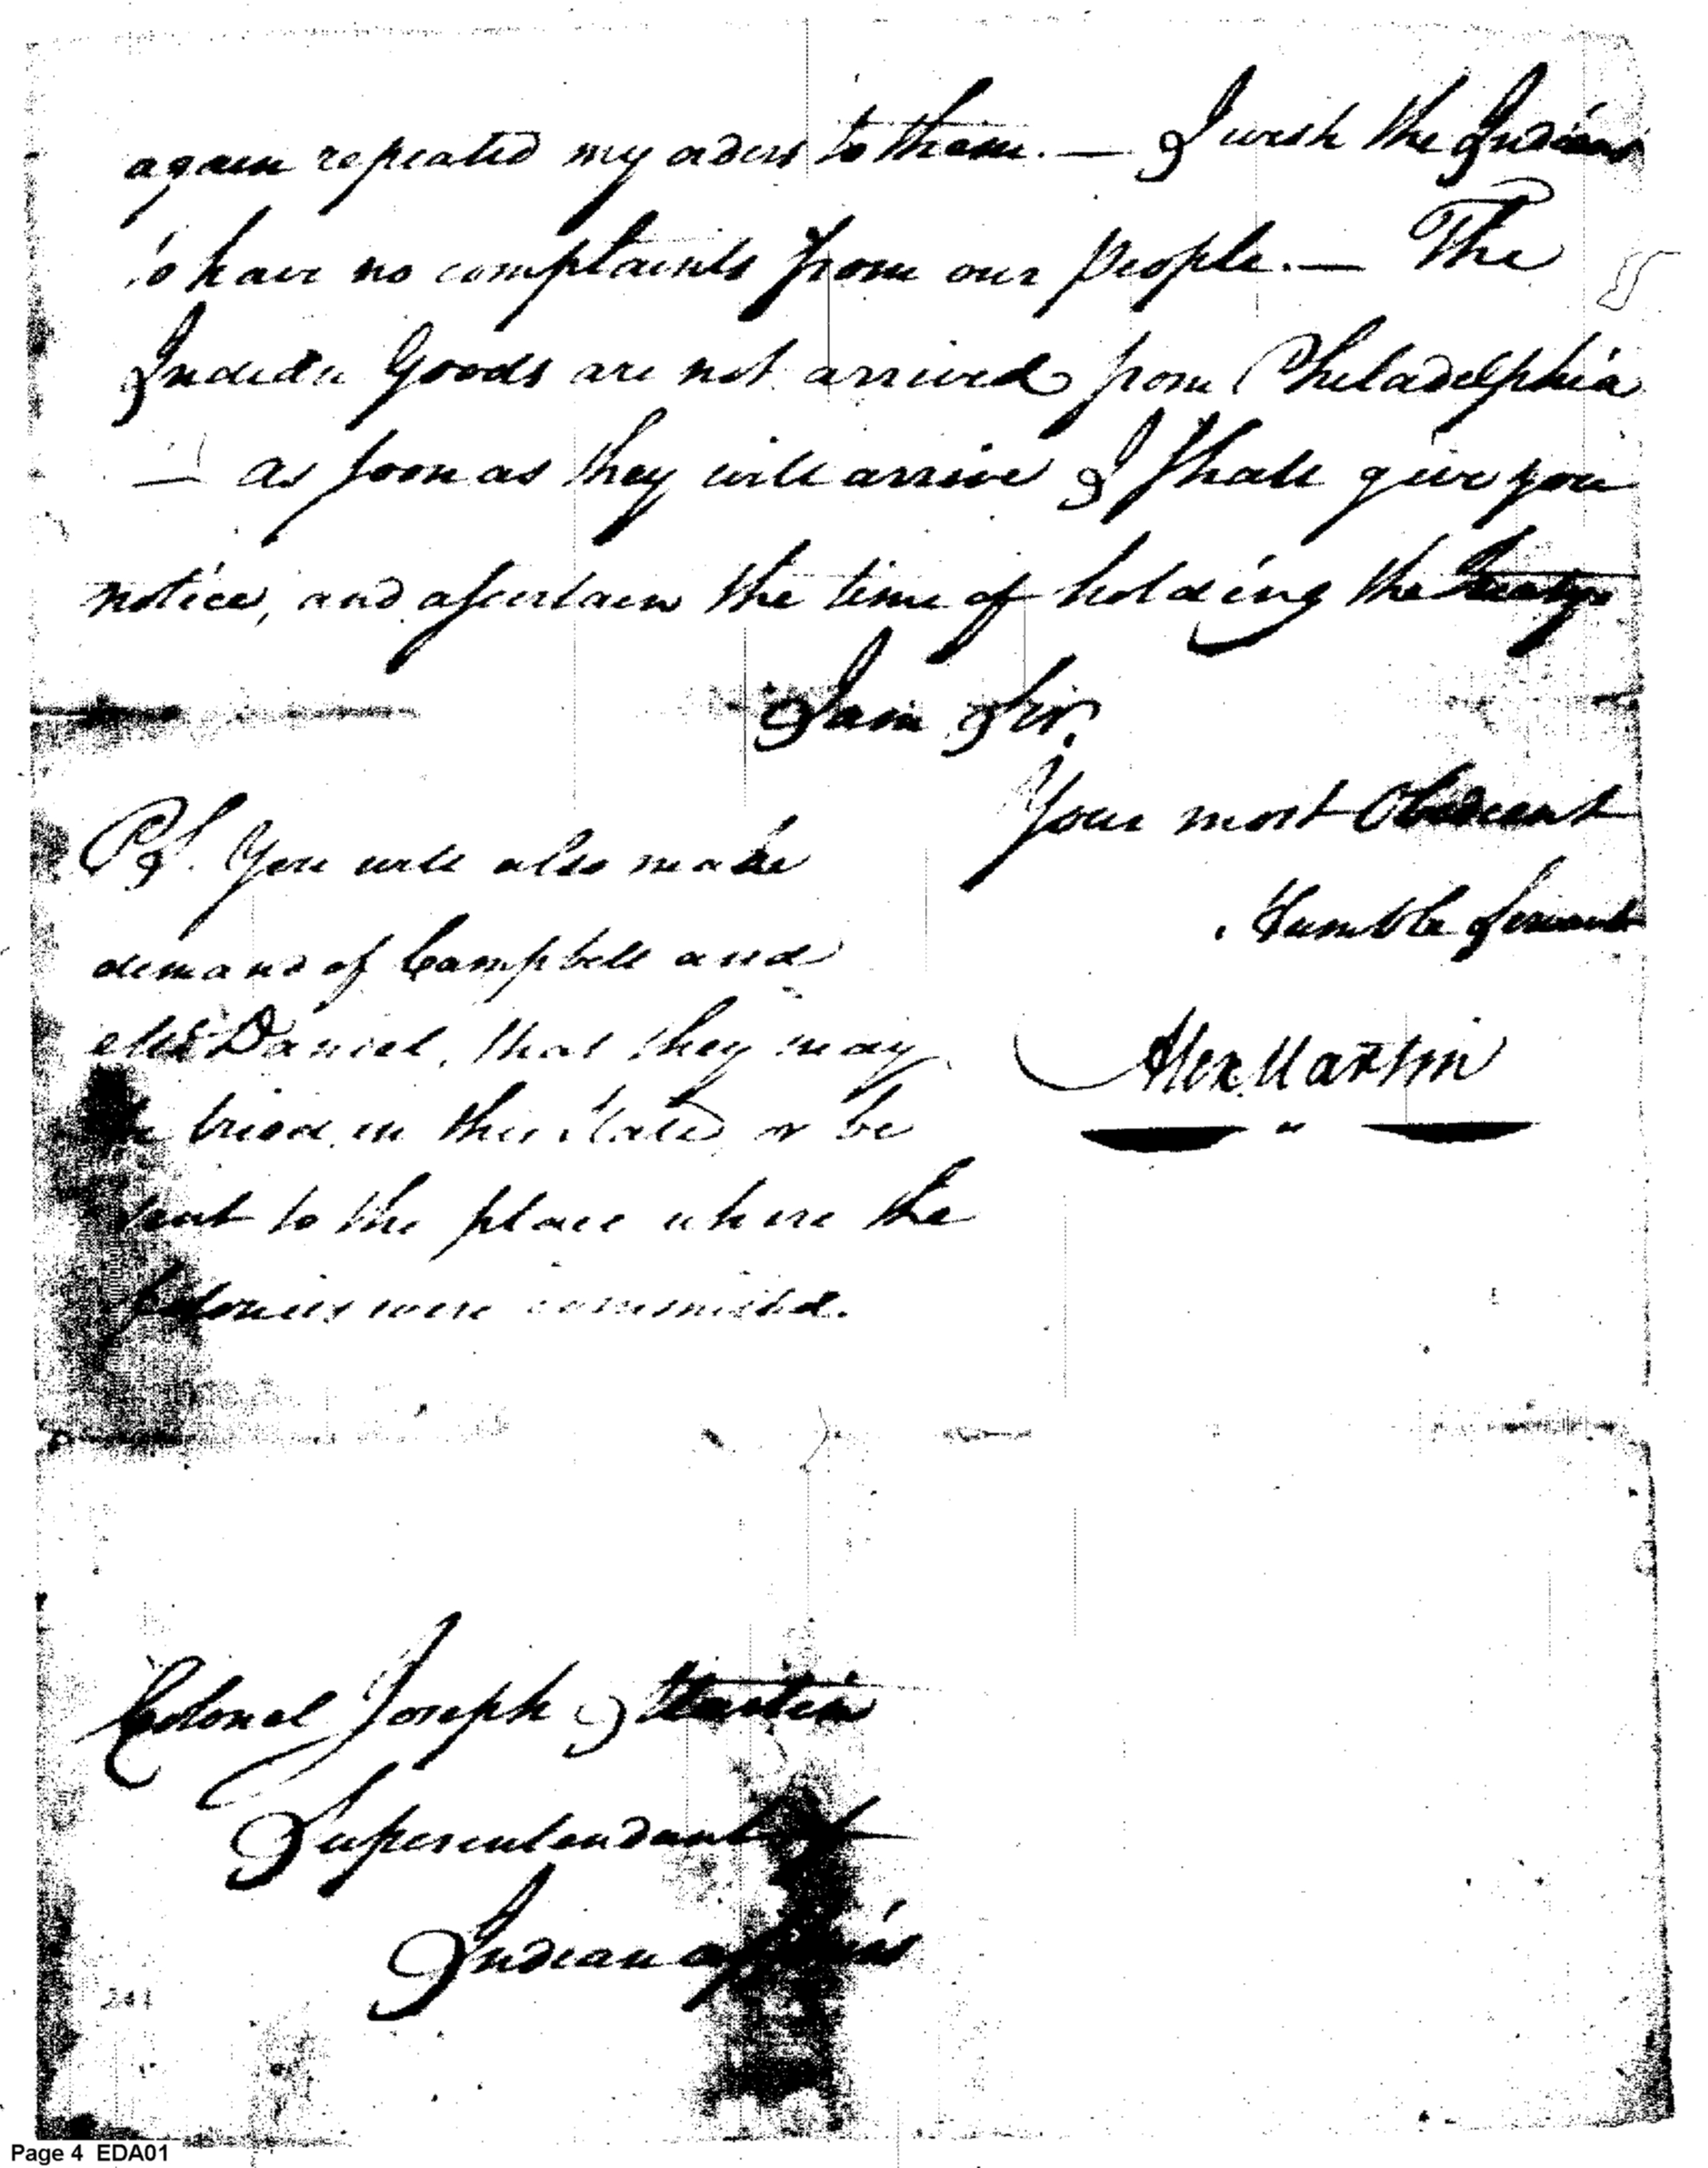 again repeated my orders to them. — I wish the Indians
to have no complaints from our People. — The
Indian Goods are not arrived from Philadelphia
— as soon as they will arrive I shall give you
notice, and ascertain the time of holding the Treaty.
I am Sir.
Your most Obedient
Humble Servant
Alex. Martin
PS. You will also make
demand of Campbell and
McDaniel, that they may
be tried in this State, or be
sent to the place where the
felonies were committed.
Colonel Joseph Martin
Superintendant of
Indian affairs
241
Page 4 EDA01